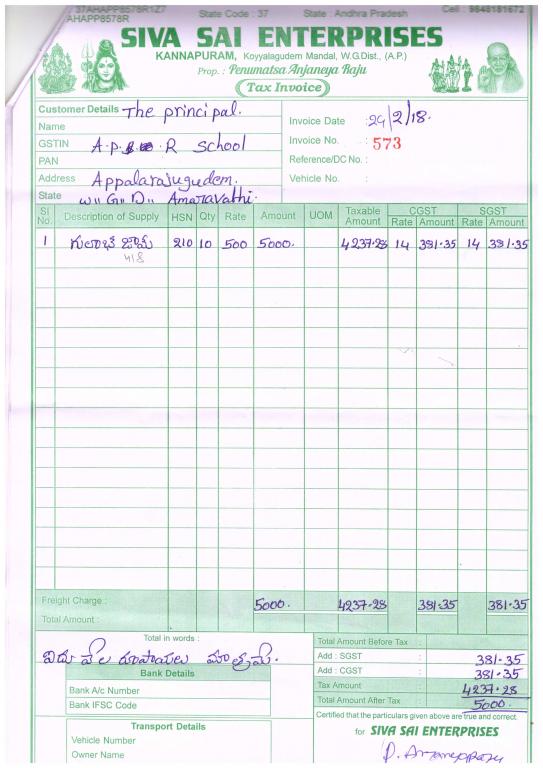 37AHAPP8578R1Z7 State Code : 37 State : Andhra Pradesh Cell : 9848181672
AHAPP8578R
SIVA SAI ENTERPRISES
KANNAPURAM, Koyyalagudem Mandal, W.G.Dist., (A.P.)
Prop.: Penumatsa Anjaneya Raju
Tax Invoice
Customer Details The principal.
Name
GSTIN A.P. R School
PAN
Address Appalarajugudem.
State W" G" D" Amaravathi.
Invoice Date : 24/2/18.
Invoice No. : 573
Reference/DC No. :
Vehicle No. :
Sl No. Description of Supply HSN Qty Rate Amount UOM Taxable Amount CGST Rate Amount SGST Rate Amount
1 గులాబ్ జామ్ 210 10 500 5000. 4237.28 14 381.35 14 381.35
Freight Charge : 5000. 4237.28 381.35 381.35
Total Amount :
Total in words :
ఐదు వేల రూపాయలు మాత్రమే.
Bank Details
Bank A/c Number
Bank IFSC Code
Transport Details
Vehicle Number
Owner Name
Total Amount Before Tax :
Add : SGST : 381.35
Add : CGST : 381.35
Tax Amount : 4237.28
Total Amount After Tax : 5000.
Certified that the particulars given above are true and correct.
for SIVA SAI ENTERPRISES